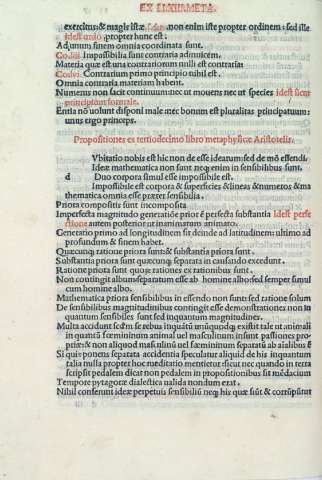 EX LI.XII.META.
exercitus: & magis istæ non enim iste propter ordinem: sed ille
propter hunc est:
Ad unum finem omnia coordinata sunt.
Impossibile sunt contraria admicem.
Materia quæ est una contrariorum nulli est contraria:
Contrarium primo principio nihil est.
Omnia contraria materiam habent.
Numerus non facit continuum nec ut mouens nec ut species idest sicut
principium formale.
Entia nō uolunt disponi male nec bonum est pluralitas principatuum:
unus ergo princeps.
Propositiones ex tertiodecimo libro metaphysicæ Aristotelis.
Vbitatio nobis est hic non de esse idearum sed de mō essendi.
Ideæ mathematica non sunt neq; enim in sensibilibus sunt.
d Duo corpora simul esse impossibile est.
Impossibile est corpora & superficies & lineas & numeros & ma
thematica omnia esse præter sensibilia.
Priora compositis sunt incomposita
Imperfecta magnitudo generatiōe prior ē perfecta substantia Idest perfe
ctione autem posterior ut inanimatum animato.
Generatio primo ad longitudinem sit deinde ad latitudinem ultimo ad
profundum & finem habet.
Quæcunq; ratione priora sunt & substantia priora sunt.
Substantia priora sunt quæcunq; separata in essendo excedunt.
Ratione priora sunt quoꝝ rationes ex rationibus sunt.
Non contingit album separatum esse ab homine albo sed semper simul
cum homine albo.
Mathematica priora sensibilibus in essendo non sunt sed ratione solum
De sensibilibus magnitudinibus contingit esse demonstrationes non in
quantum sensibiles sunt sed inquantum magnitudines.
Multa accidunt scdm se rebus inquātū unūquodq; existit tale ut animali
in quantū fœmininum animal uel masculinum insunt passiones pro
priæ & non aliquod masculinū uel fœmininum separatū ab aialibus &
Si quis ponens separata accidentia speculatur aliquid de his inquantum
talia nulla propter hoc meditatio mentietur sicut nec quando in terra
scripsit pedalem dicat non pedalem in propositionibus sit mēdacium
Tempore pytagoræ dialectica ualida nondum erat.
Nihil conferunt ideæ perpetuis sensibiliū neq; his quæ fiūt & corrūpūtur